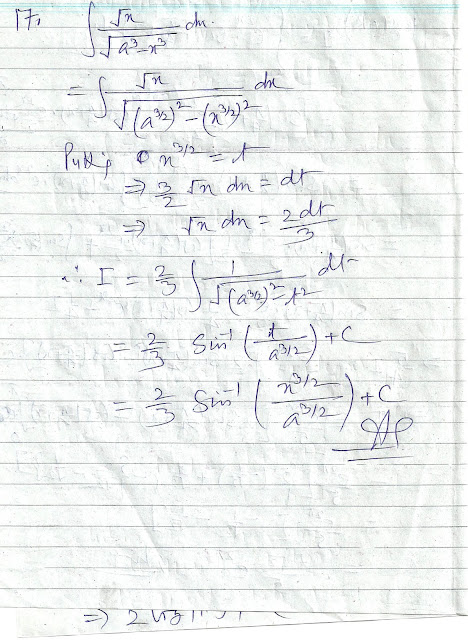 17. ∫ √x / √(a³-x³) dx.
= ∫ √x / √((a^3/2)² - (x^3/2)²) dx
Putting x^3/2 = t
⇒ 3/2 √x dx = dt
⇒ √x dx = 2dt/3
∴ I = 2/3 ∫ 1 / √((a^3/2)² - t²) dt
= 2/3 Sin⁻¹ (t / a^3/2) + C
= 2/3 Sin⁻¹ (x^3/2 / a^3/2) + C